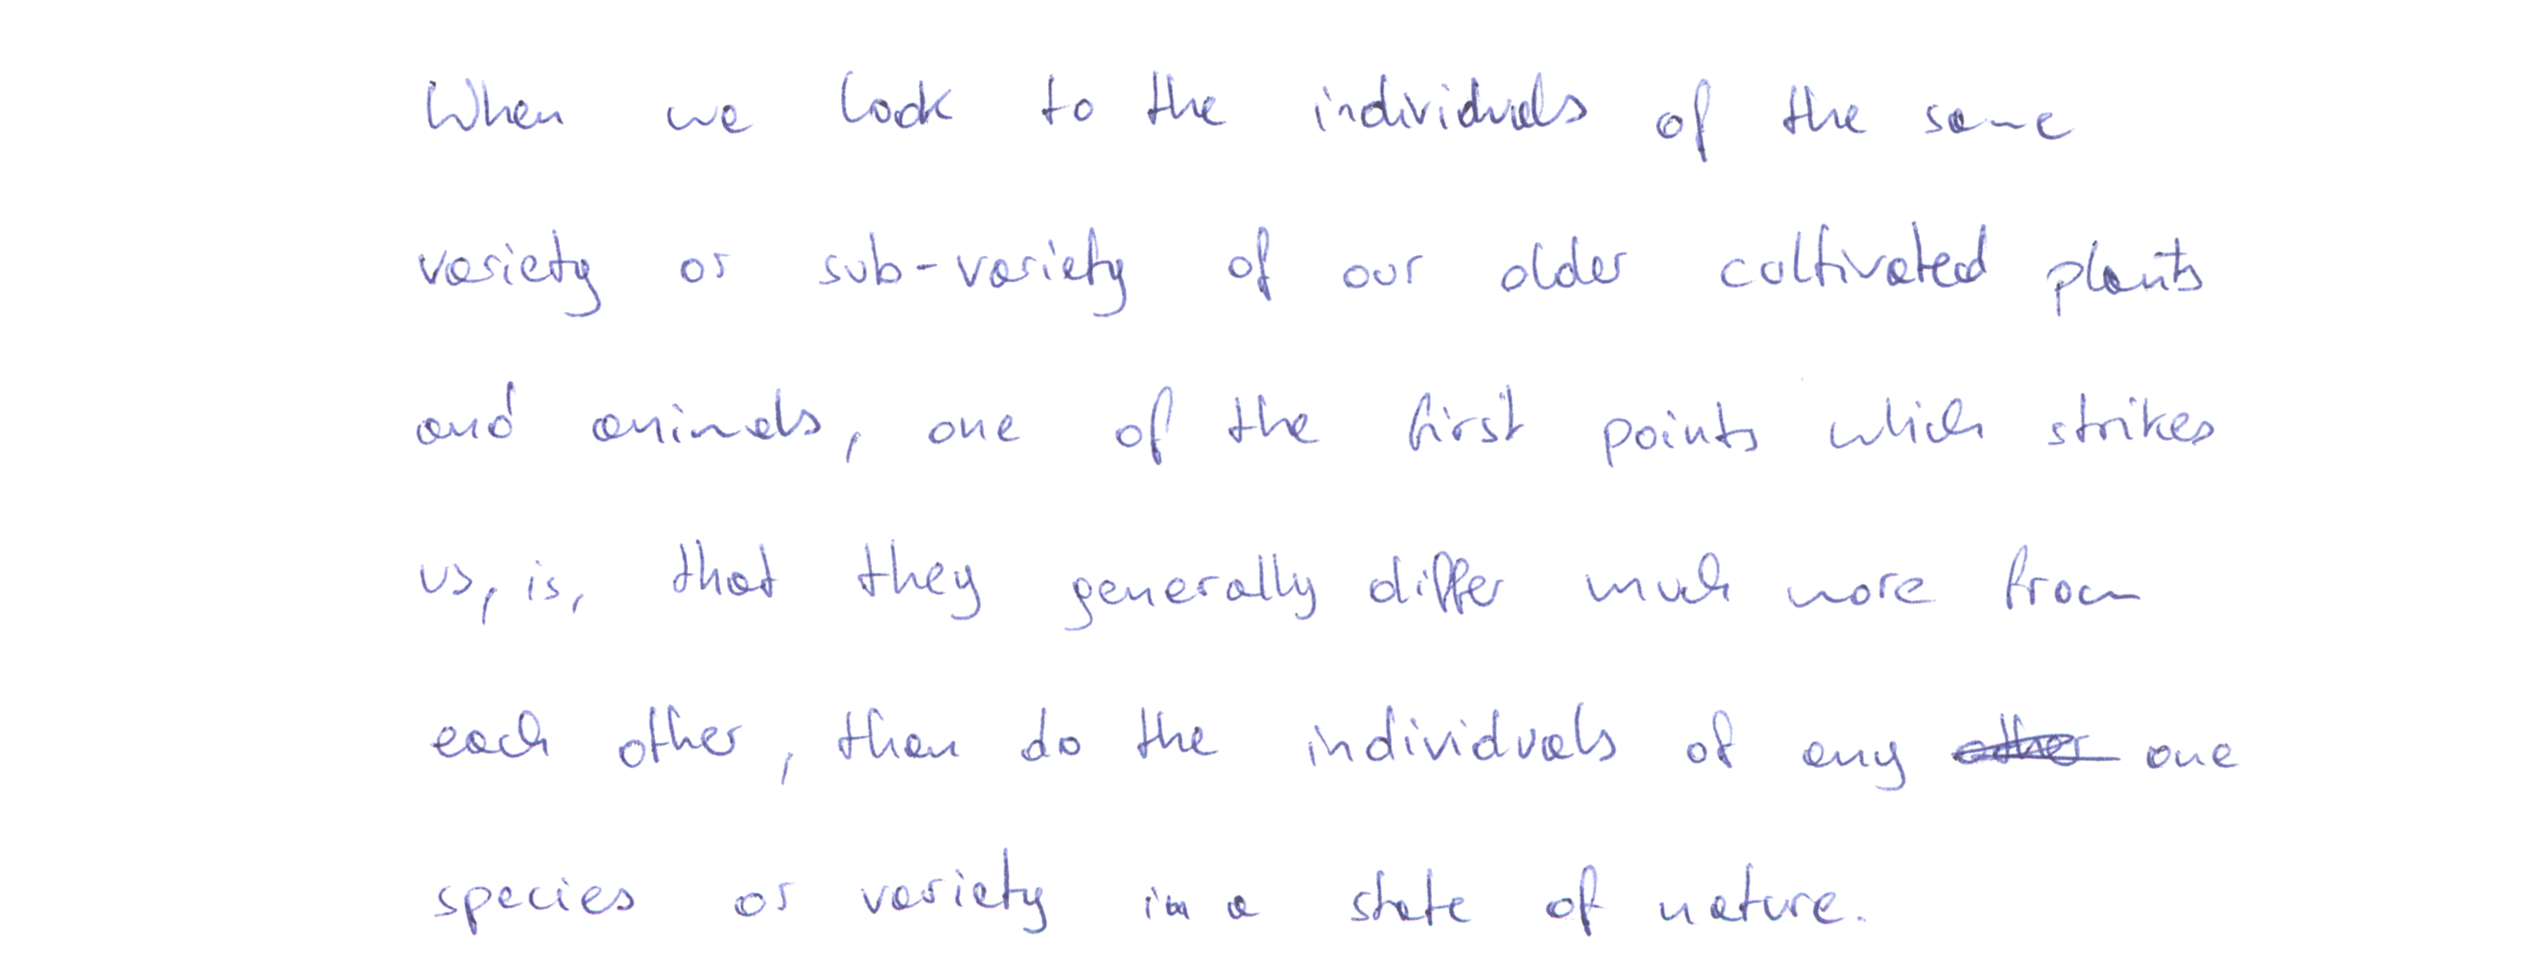 When we look to the individuals of the same
variety or sub-variety of our older cultivated plants
and animals, one of the first points which strikes
us, is, that they generally differ much more from
each other, than do the individuals of any other one
species or variety in a state of nature.